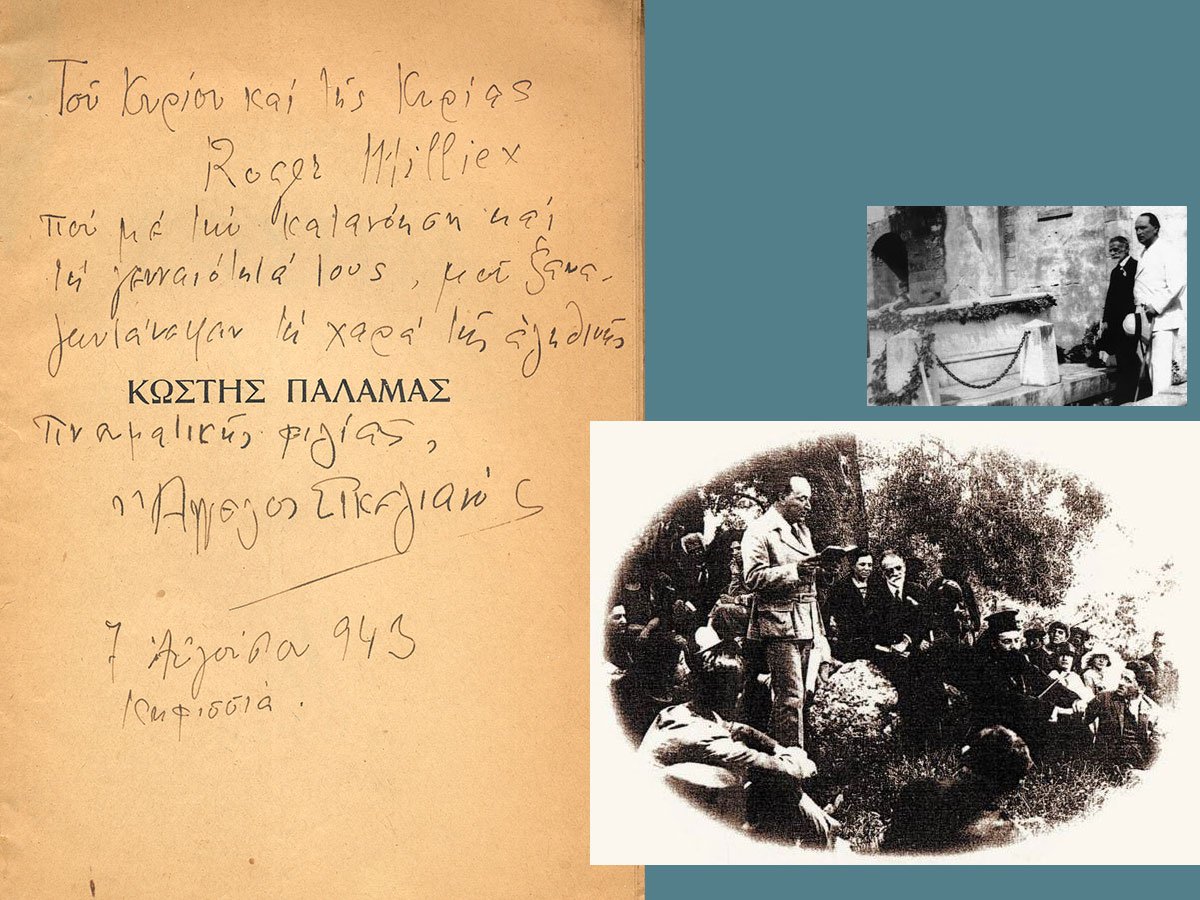 Τοῦ Κυρίου καὶ τῆς Κυρίας
Roger Milliex
ποὺ μὲ τὴν κατανόηση καὶ
τὴ γενναιότητά τους, μοῦ ξανα-
ζωντάνεψαν τὴ χαρὰ τῆς ἀληθινῆς
ΚΩΣΤΗΣ ΠΑΛΑΜΑΣ
πνευματικῆς φιλίας,
Ἄγγελος Σικελιανός
7 Αὐγούστου 943
Κηφισσιά.